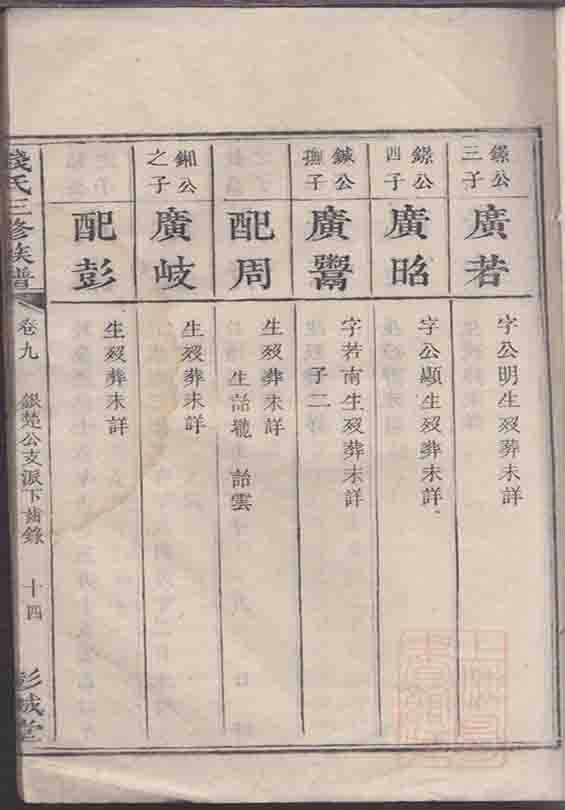 鐛公三子
廣若
字公明生歿葬未詳
鐛公四子
廣昭
字公顯生歿葬未詳
鍼公撫子
廣鬻
字若南生歿葬未詳
子二
配周
生歿葬未詳
生詒瓏 詒雲
鎺公之子
廣岐
生歿葬未詳
配彭
生歿葬未詳
錢氏三修族譜
卷九
銀楚公支派下齒錄
十四
彭城堂